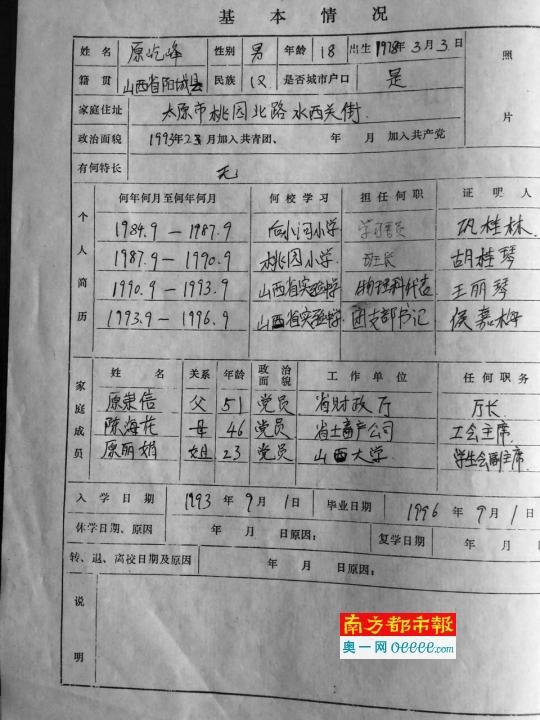 基本情况
姓名 原屹峰 性别 男 年龄 18 出生 1978年3月3日 照
籍贯 山西省阳城县 民族 汉 是否城市户口 是
家庭住址 太原市桃园北路水西关街 片
政治面貌 1993年2月加入共青团、 年 月 加入共产党
有何特长 无
个人简历 何年何月至何年何月 何校学习 担任何职 证明人
1984.9 — 1987.9 后小河小学 学习委员 巩桂林
1987.9 — 1990.9 桃园小学 班长 胡桂琴
1990.9 — 1993.9 山西省实验中学 物理科代表 王丽琴
1993.9 — 1996.9 山西省实验中学 团支部书记 侯嘉梅
家庭成员 姓名 关系 年龄 政治面貌 工作单位 任何职务
原崇信 父 51 党员 省财政厅 厅长
陈海花 母 46 党员 省土畜产公司 工会主席
原丽娟 姐 23 党员 山西大学 学生会副主席
入学日期 1993年9月1日 毕业日期 1996年9月1日
休学日期、原因 年 月 日原因： 复学日期 年 月
转、退、离校日期及原因 年 月 日原因：
说明
南方都市报
奥一网 oeeee.com